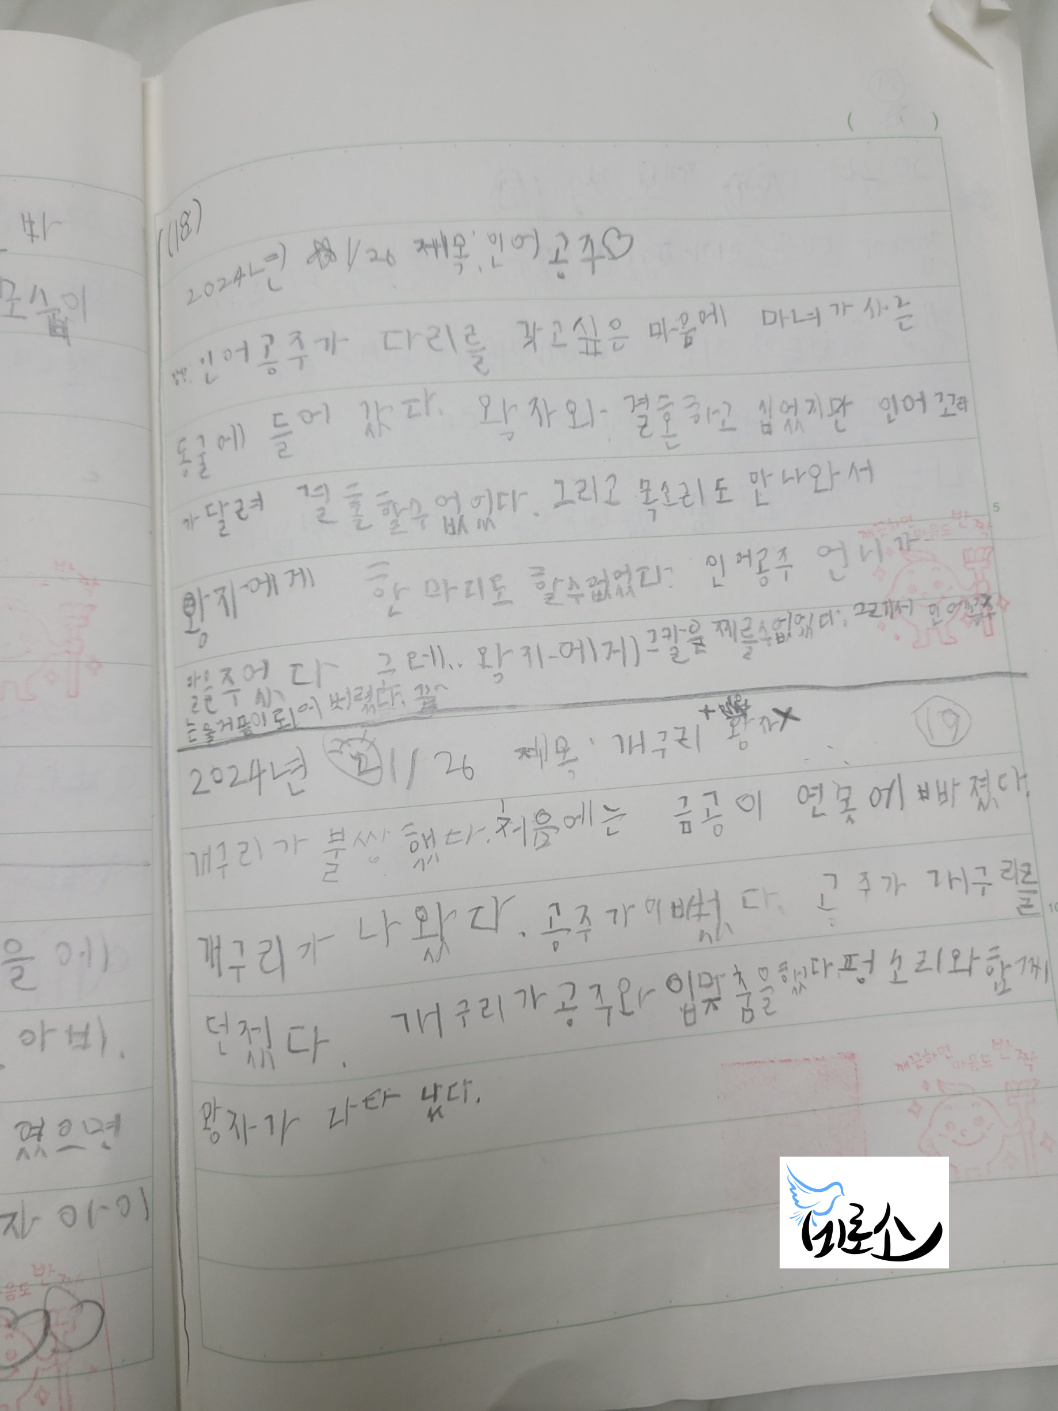 ( )
(18)
2024년 1/26 제목: 인어공주♡
인어공주가 다리를 갖고싶은 마음에 마녀가 사는
동굴에 들어 갔다. 왕자와 결혼하고 싶었지만 인어 꼬리
가 달려 결혼할수없었다. 그리고 목소리도 안나와서
왕자에게 한 마디도 할수없었다. 인어공주 언니가
칼을 주었다 그런데.. 왕자에게 그칼을 찌를수없었다. 그래서 인어공주
는 물거품이 되어 버렸다. 끝
2024년 11/26 제목: 개구리 + 왕자 (19)
개구리가 불쌍했다. 처음에는 금공이 연못에 빠졌다.
개구리가 나왔다. 공주가 이뻤다. 공주가 개구리를
던졌다. 개구리가 공주와 입맞춤을했다. 펑 소리와 함께
왕자가 나타났다.
바
모습이
을 에
아빠.
였으면
자 아이
5
10
깨끗하면 마음도 반짝
비로소